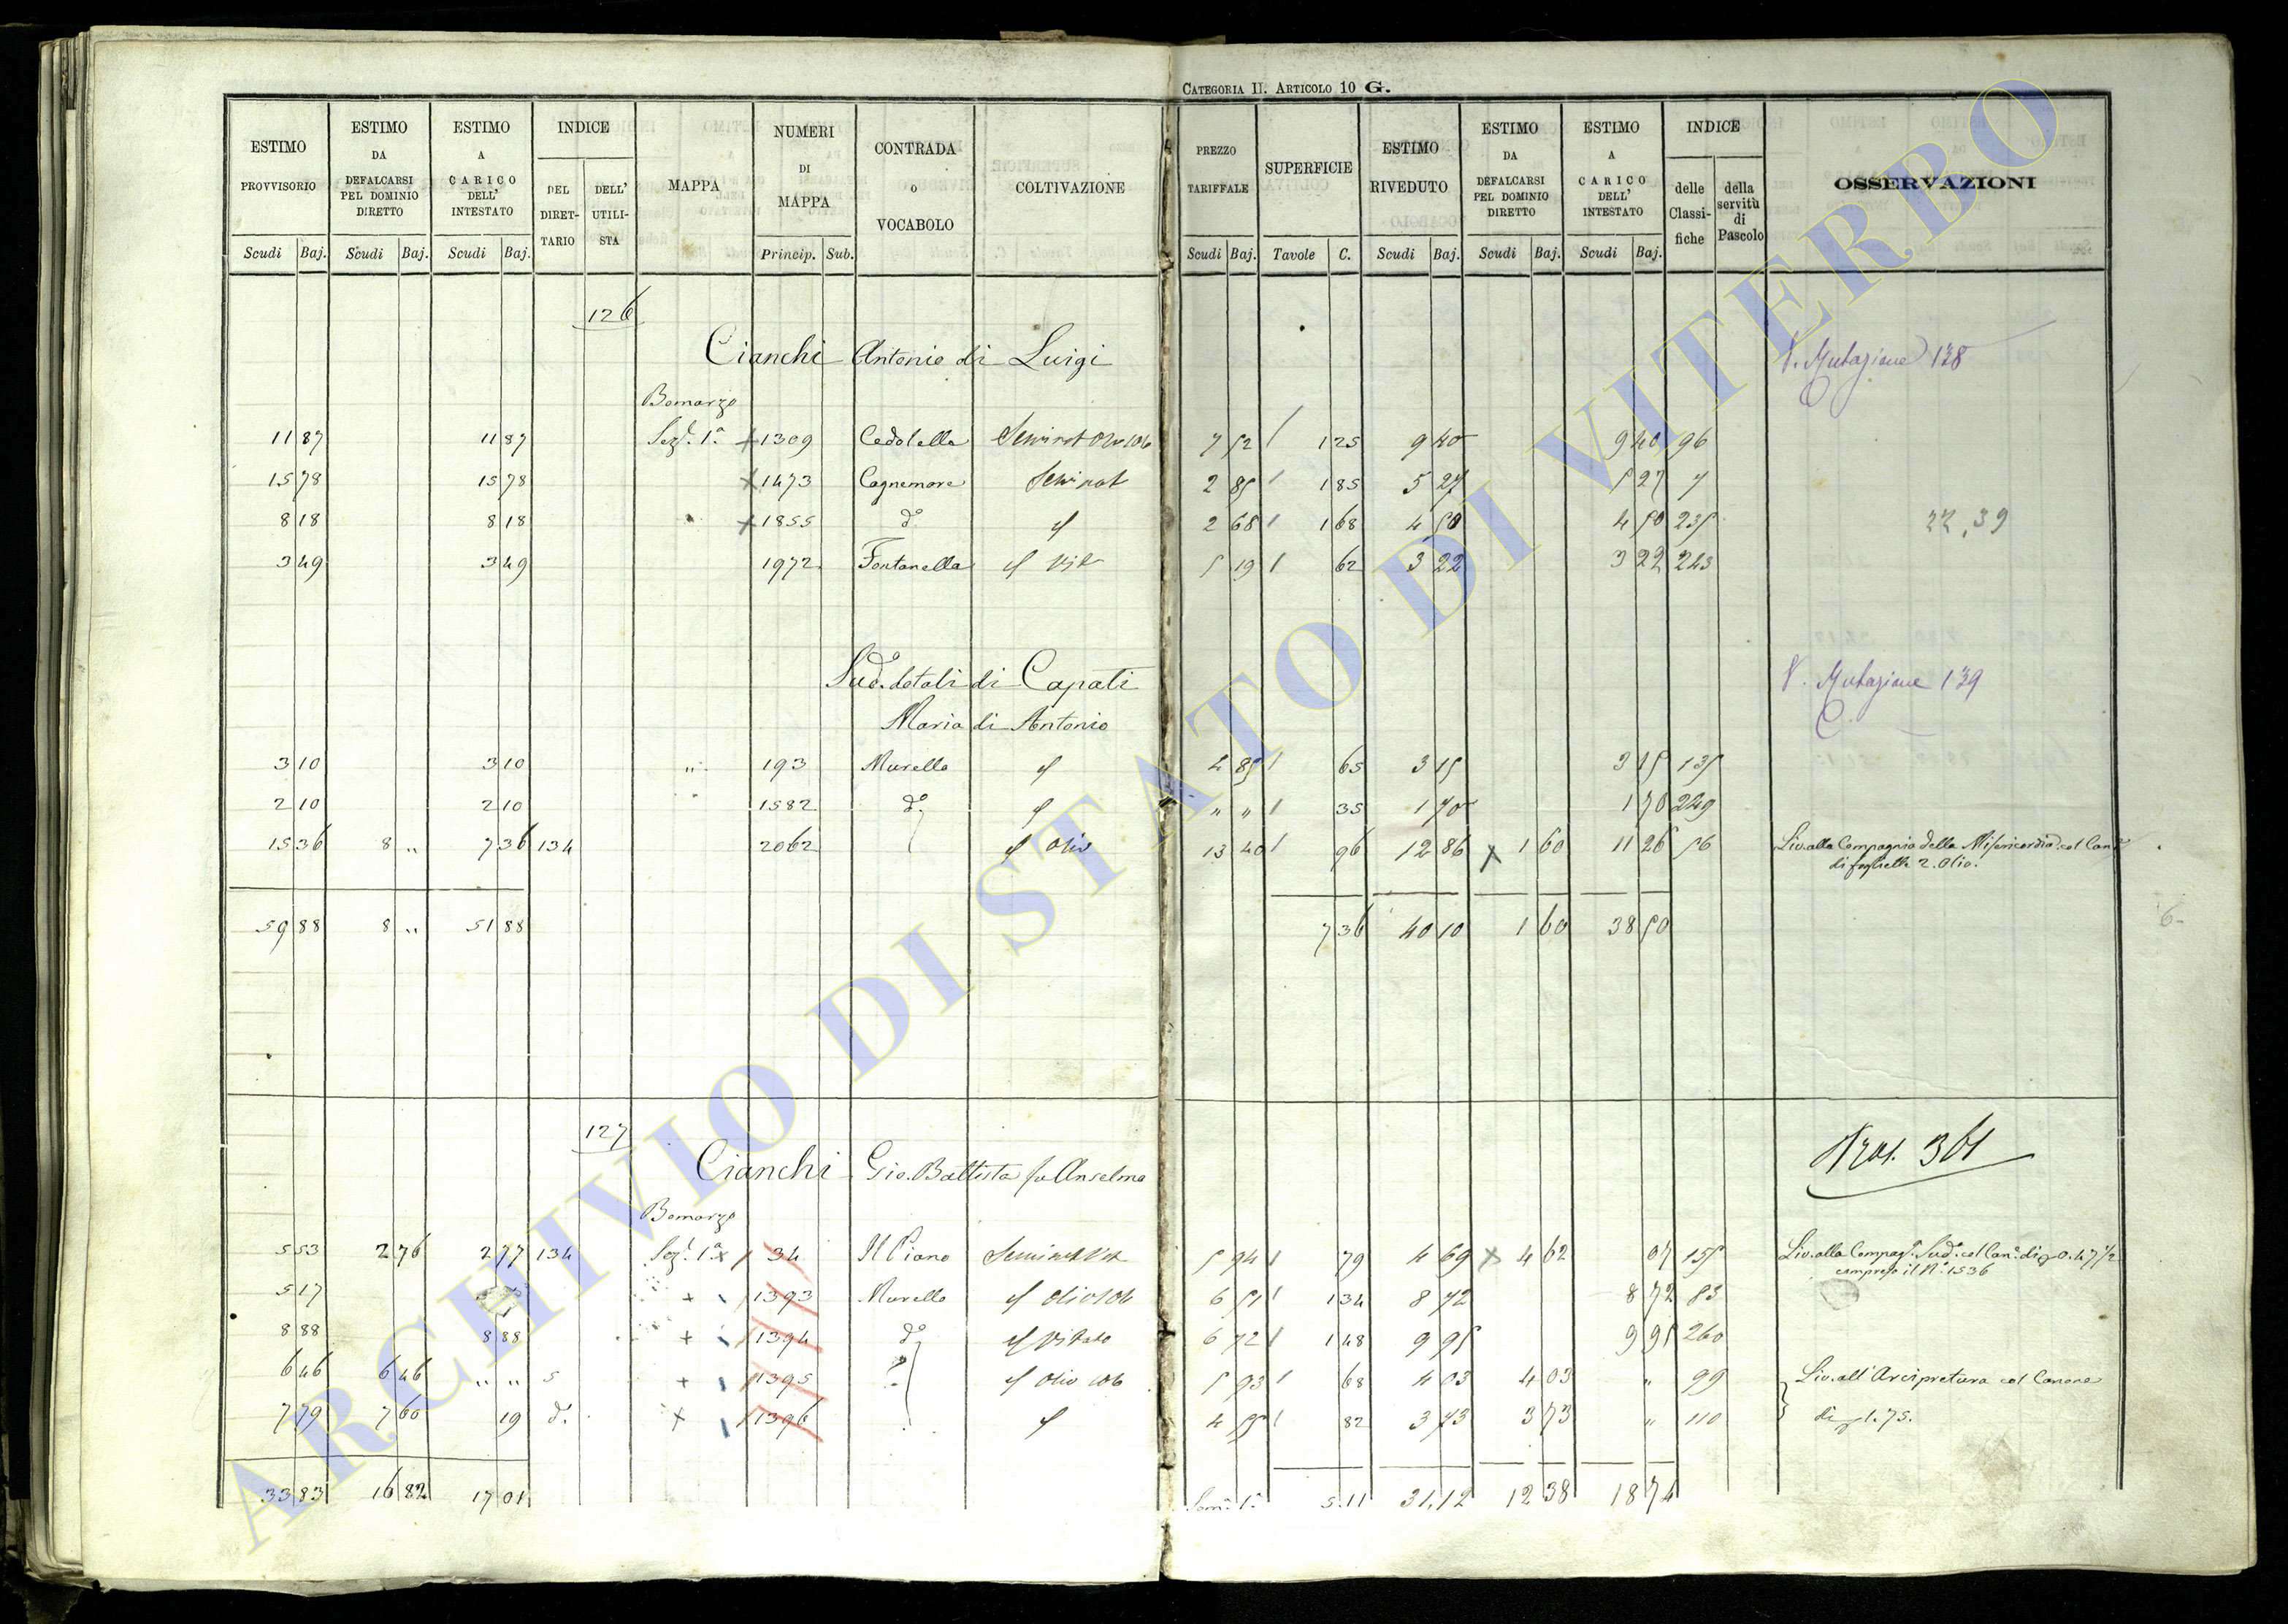 CATEGORIA II. ARTICOLO 10 G.
ESTIMO PROVVISORIO Scudi Baj. ESTIMO DA DEFALCARSI PEL DOMINIO DIRETTO Scudi Baj. ESTIMO A CARICO DELL' INTESTATO Scudi Baj. INDICE DEL DIRETTARIO DELL' UTILISTA MAPPA NUMERI DI MAPPA Princip. Sub. CONTRADA o VOCABOLO COLTIVAZIONE PREZZO TARIFFALE Scudi Baj. SUPERFICIE Tavole C. ESTIMO RIVEDUTO Scudi Baj. ESTIMO DA DEFALCARSI PEL DOMINIO DIRETTO Scudi Baj. ESTIMO A CARICO DELL' INTESTATO Scudi Baj. INDICE delle Classifiche della servitù di Pascolo OSSERVAZIONI
126
Cianchi Antonio di Luigi V. Mutazione 138
Bomarzo
11 87 11 87 Sez. 1ª 1309 Cedolella 7 52 1 25 9 40 9 40 96
15 78 15 78 1473 Cagnemore Seminat 2 85 1 85 5 27 5 27 7
8 18 8 18 1855 d° 2 68 1 68 4 50 4 50 235 22,39
3 49 3 49 1972 Fontanella 5 19 62 3 22 3 22 243
Sud.° dotali di Capati V. Mutazione 139
Maria di Antonio
3 10 3 10 " 193 Murella 4 85 65 3 15 3 15 135
2 10 2 10 " 1582 d° " " 35 1 70 1 70 249
15 36 8 " 7 36 134 2062 Oliv 13 40 96 12 86 1 60 11 26 56 Liv. alla Compagnia della Misericordia col Can.e
di fogliette 2. Olio.
59 88 8 " 51 88 7 36 40 10 1 60 38 50
127
Prot. 361
Cianchi Gio. Battista fu Anselmo
Bomarzo
5 53 2 76 2 77 134 Sez. 1ª 34 Il Piano 5 94 79 4 69 4 62 07 155 Liv. alla Compag.a Sud.a col Can.e di 0.47 1/2
compreso il N.° 1536
5 17 1393 Murello 6 51 1 34 8 72 8 72 83
8 88 8 88 1394 d° 6 72 1 48 9 95 9 95 260
6 46 6 46 " " 5 1395 5 93 68 4 03 4 03 " 99 Liv. all' Arcipretura col Canone
7 79 7 60 19 d° 1396 4 55 82 3 73 3 73 " 110 di 1.75.
33 83 16 82 17 01 Som.a 1ª 5.11 31.12 12 38 18 74
ARCHIVIO DI STATO DI VITERBO